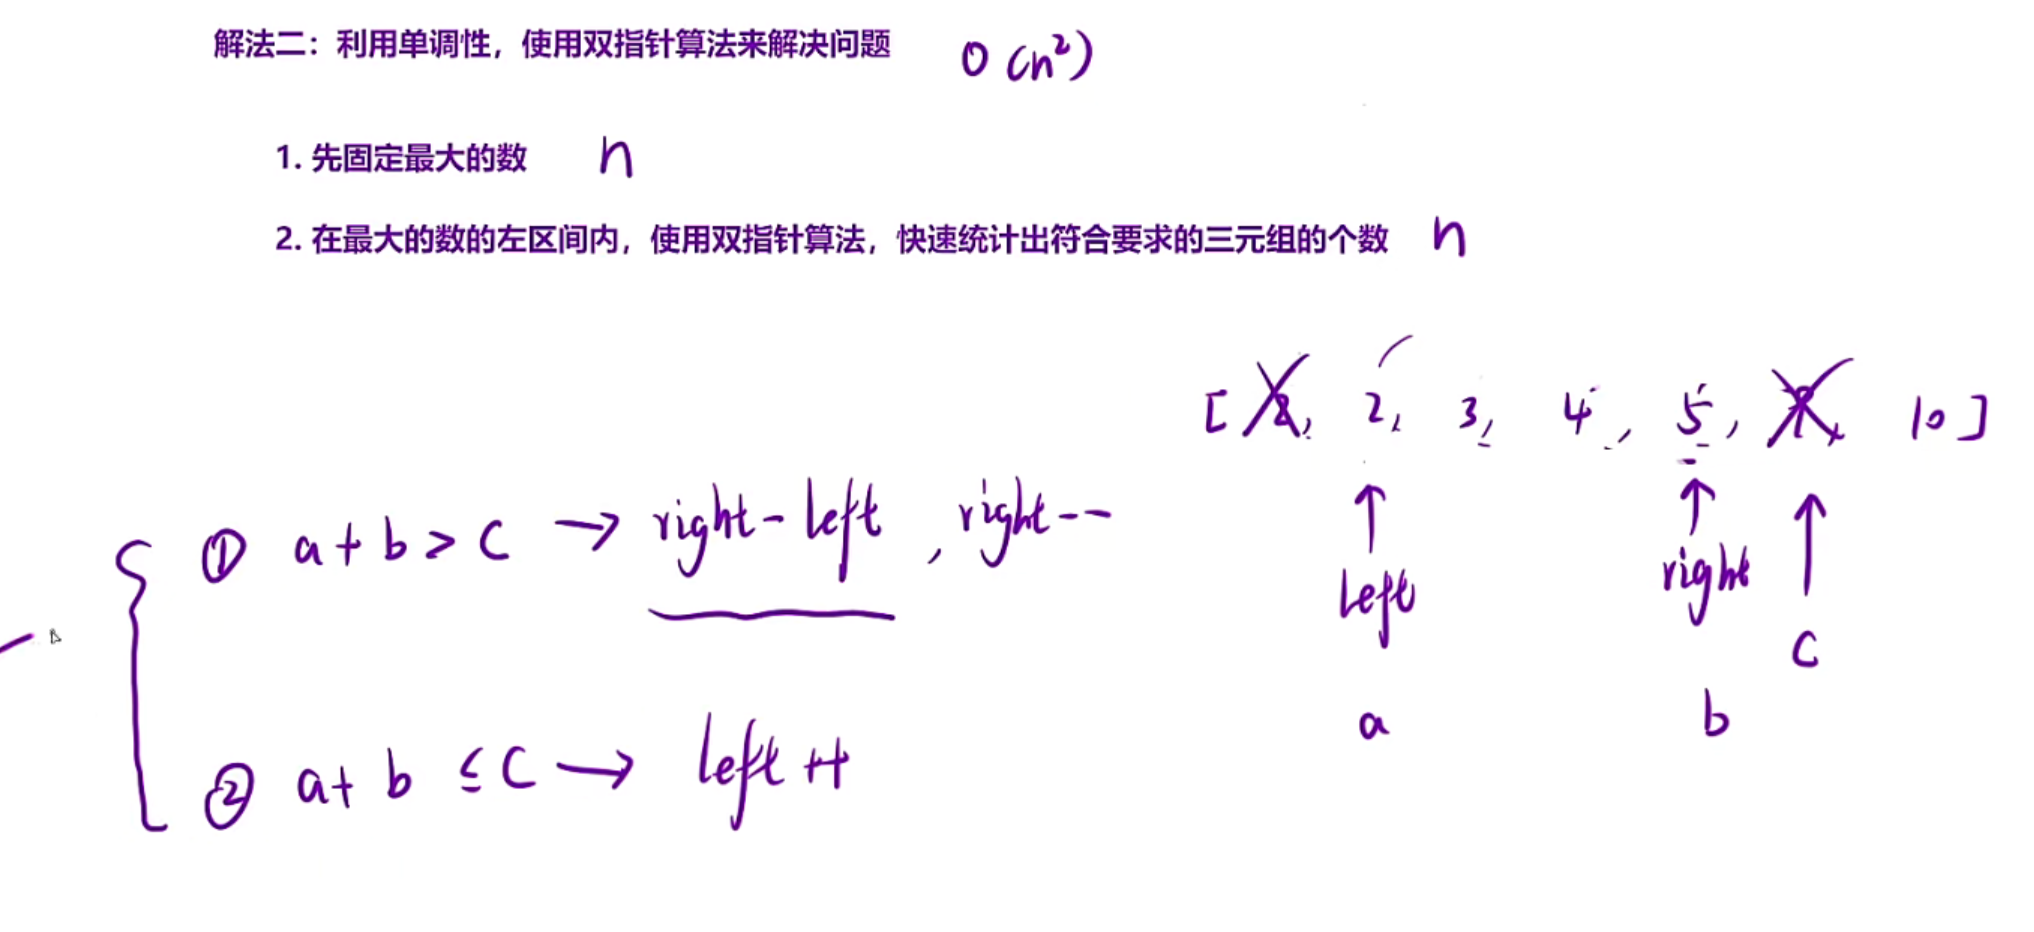 解法二：利用单调性，使用双指针算法来解决问题 O(n²)
1. 先固定最大的数 n
2. 在最大的数的左区间内，使用双指针算法，快速统计出符合要求的三元组的个数 n
[2, 2, 3, 4, 5, , 10]
① a+b>c → right-left, right--
left right
c
② a+b ≤ c → left++
a b